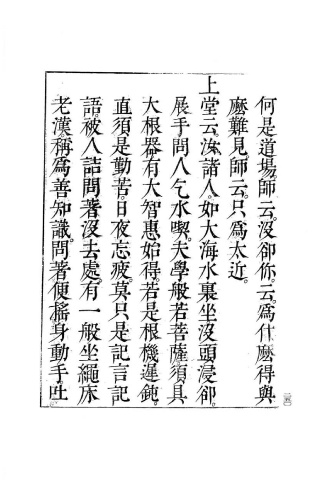 何是道場。師云。沒卻你。云。爲什麼得與
麼難見。師云。只爲太近。
上堂云。汝諸人。如大海水裏坐沒頭浸卻。
展手問人乞水喫。夫學般若菩薩須具
大根器有大智惠始得。若是根機遲鈍。
直須是勤苦。日夜忘疲。莫只是記言記
語。被人詰問著沒去處。有一般坐繩床
老漢。稱爲善知識。問著便搖身動手。吐